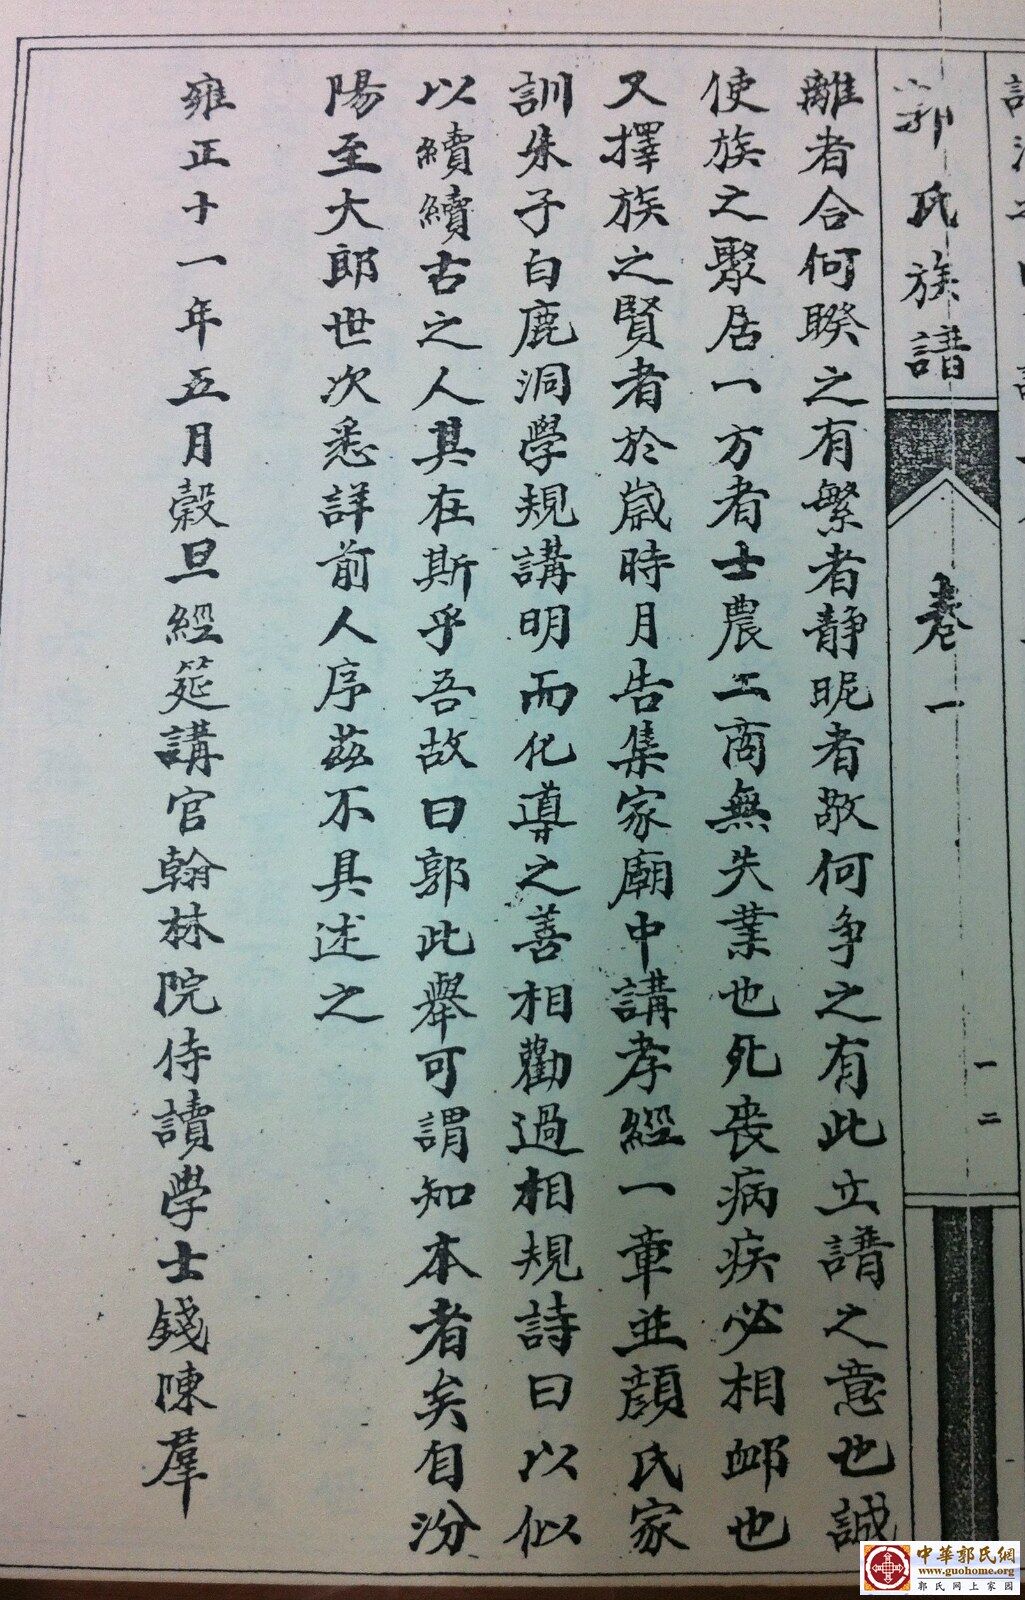 郭氏族譜
卷一
一二
離者合何睽之有繁者靜昵者敬何争之有此立譜之意也誠
使族之聚居一方者士農工商無失業也死丧病疾必相衈也
又擇族之賢者於歲時月告集家廟中講孝經一章並顔氏家
訓朱子白鹿洞學規講明而化導之善相勸過相規詩曰以似
以續續古之人其在斯乎吾故曰郭此舉可謂知本者矣自汾
陽至大郎世次悉詳前人序茲不具述之
雍正十一年五月榖旦經筵講官翰林院侍讀學士錢陳羣
中華郭氏網
www.guohome.org
郭氏网上家园